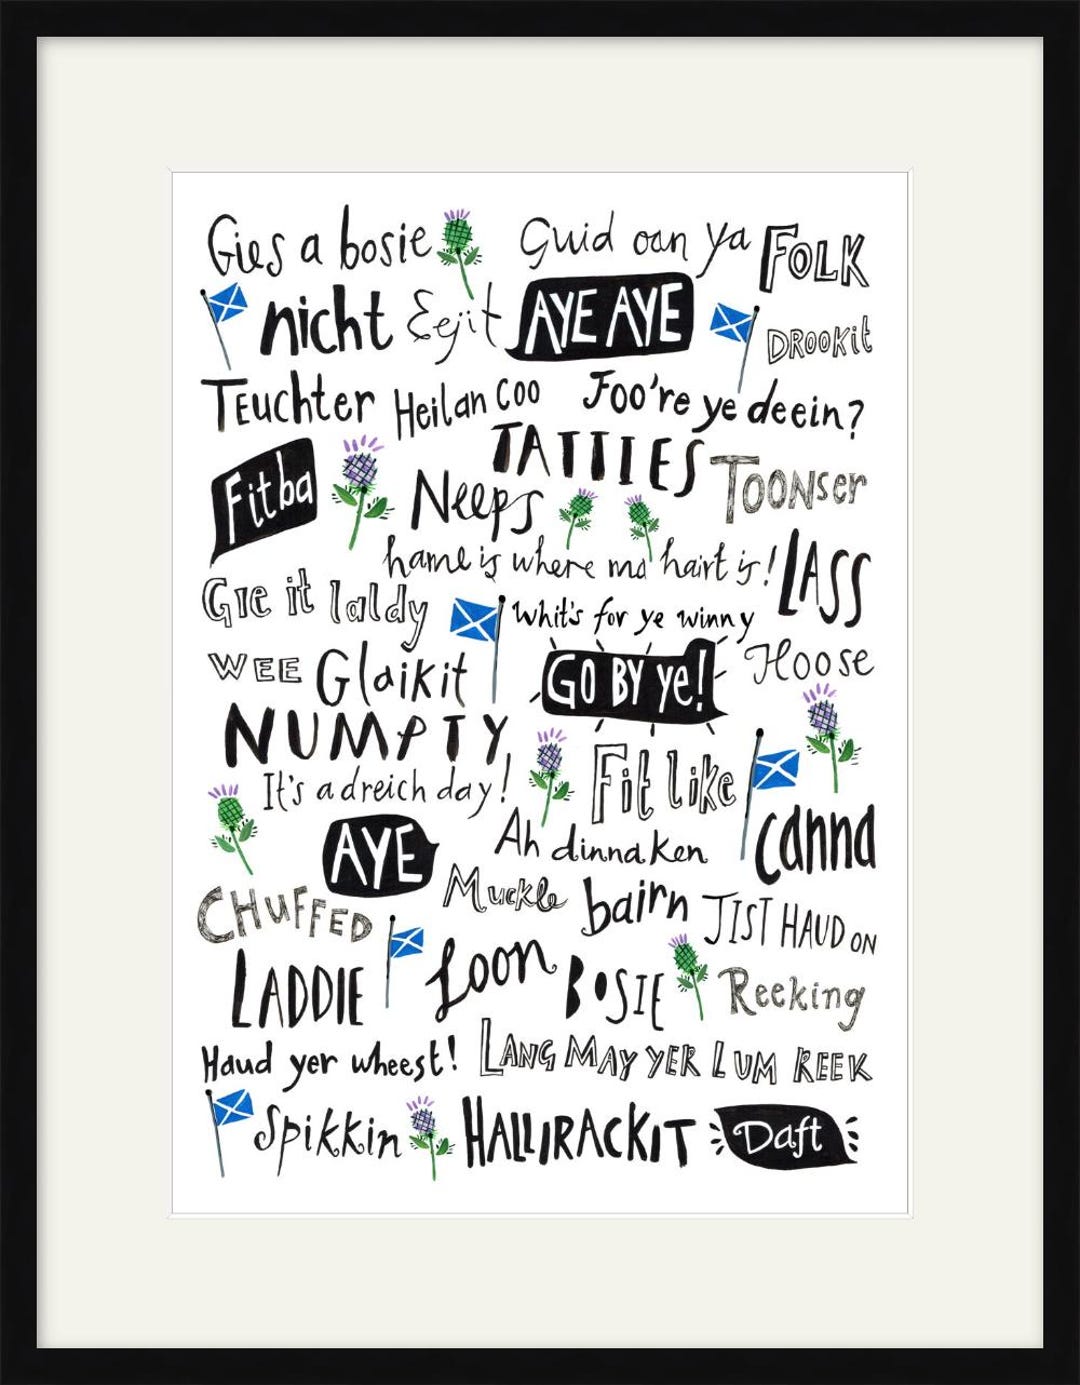 Gies a bosie
Guid oan ya
FOLK
nicht
Eejit
AYE AYE
DROOKit
TEuchter
Heilan COO
Foo're ye deein?
Fitba
TATTIES
Neeps
TOONser
hame is where ma hairt is!
LASS
GIE it laldy
Whit's for ye winny
GO BY ye!
WEE
Glaikit
Hoose
NUMPTY
It's a dreich day!
Fit like
AYE
Ah dinna ken
canna
CHUFFED
Muckle
bairn
JIST HAUD ON
LADDIE
Loon
BOSIE
Reeking
Haud yer wheest!
LANG MAY YER LUM REEK
Spikkin
HALLIRACKIT
Daft